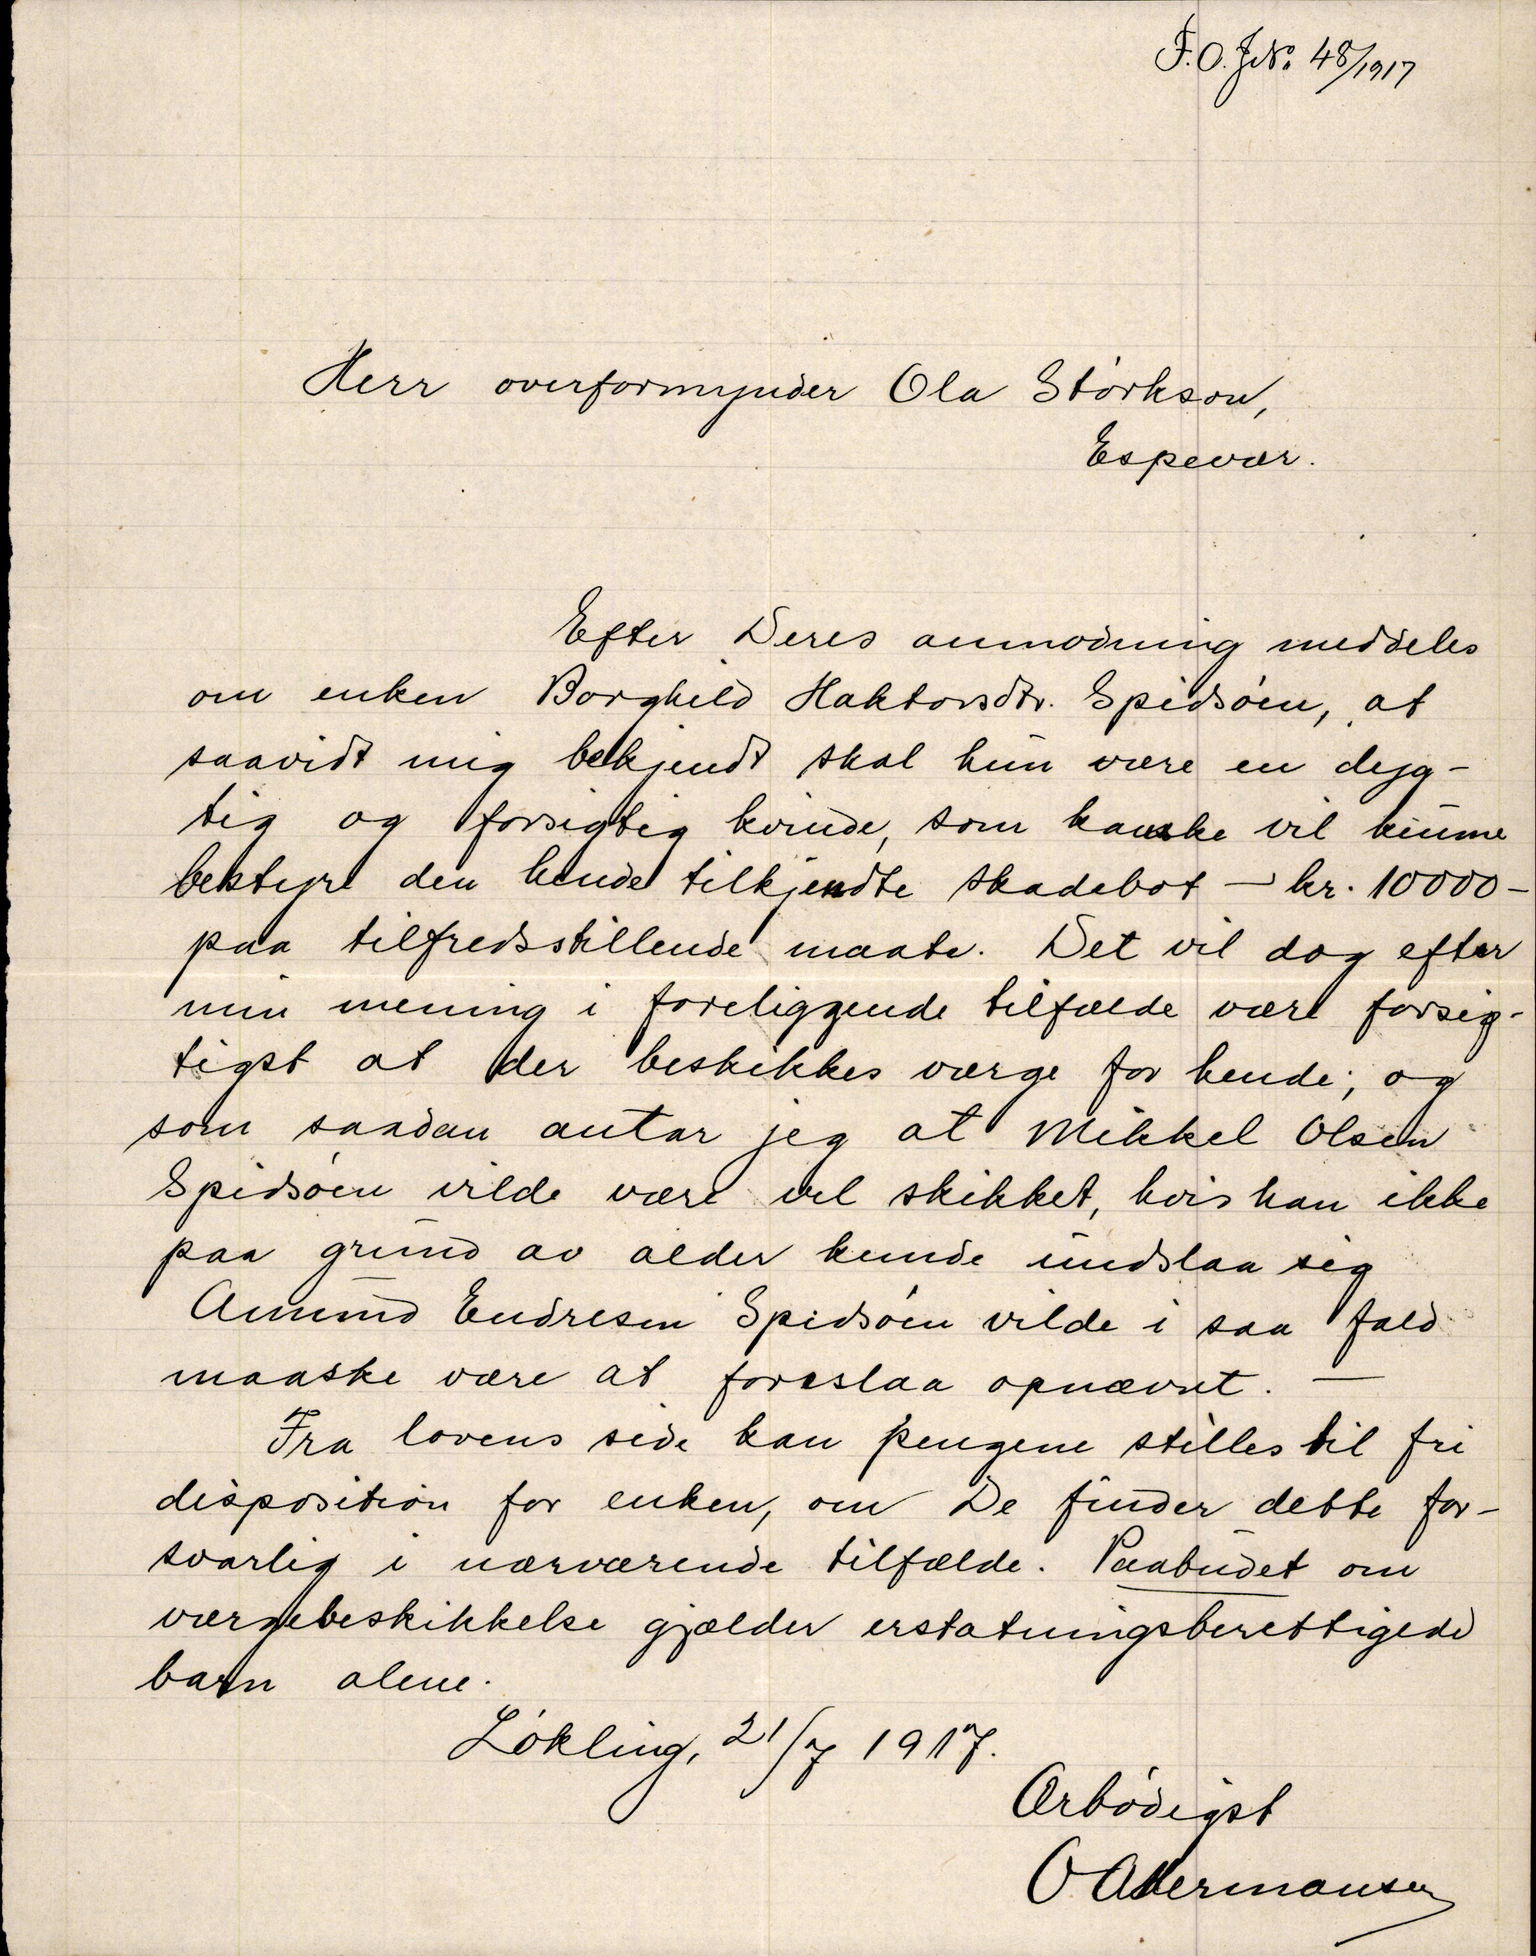 F. O. J№ 48/1917
Herr overformynder Ola Størkson,
Espevær.
Efter Deres anmodning meddeles
om enken Borghild Haktorsdtr. Spidsøen, at
saavidt mig bekjendt skal hun være en dyg-
tig og forsigtig kvinde, som kanske vil kunne
bestyre den hende tilkjendte skadebot – kr. 10000 –
paa tilfredsstillende maate. Det vil dog efter
min mening i foreliggende tilfælde være forsig-
tigst at der beskikkes værge for hende; og
som saadan antar jeg at Mikkel Olsen
Spidsøen vilde være vel skikket, hvis han ikke
paa grund av alder kunde undslaa sig
Amund Endresen Spidsøen vilde i saa fald
maaske være at foreslaa opnævnt. —
Fra lovens side kan pengene stilles til fri
disposition for enken, om De finder dette for-
svarlig i nærværende tilfælde. Paabudet om
værgebeskikkelse gjælder erstatningsberettigede
barn alene.
Løkling, 21/7 1917.
Ærbødigst